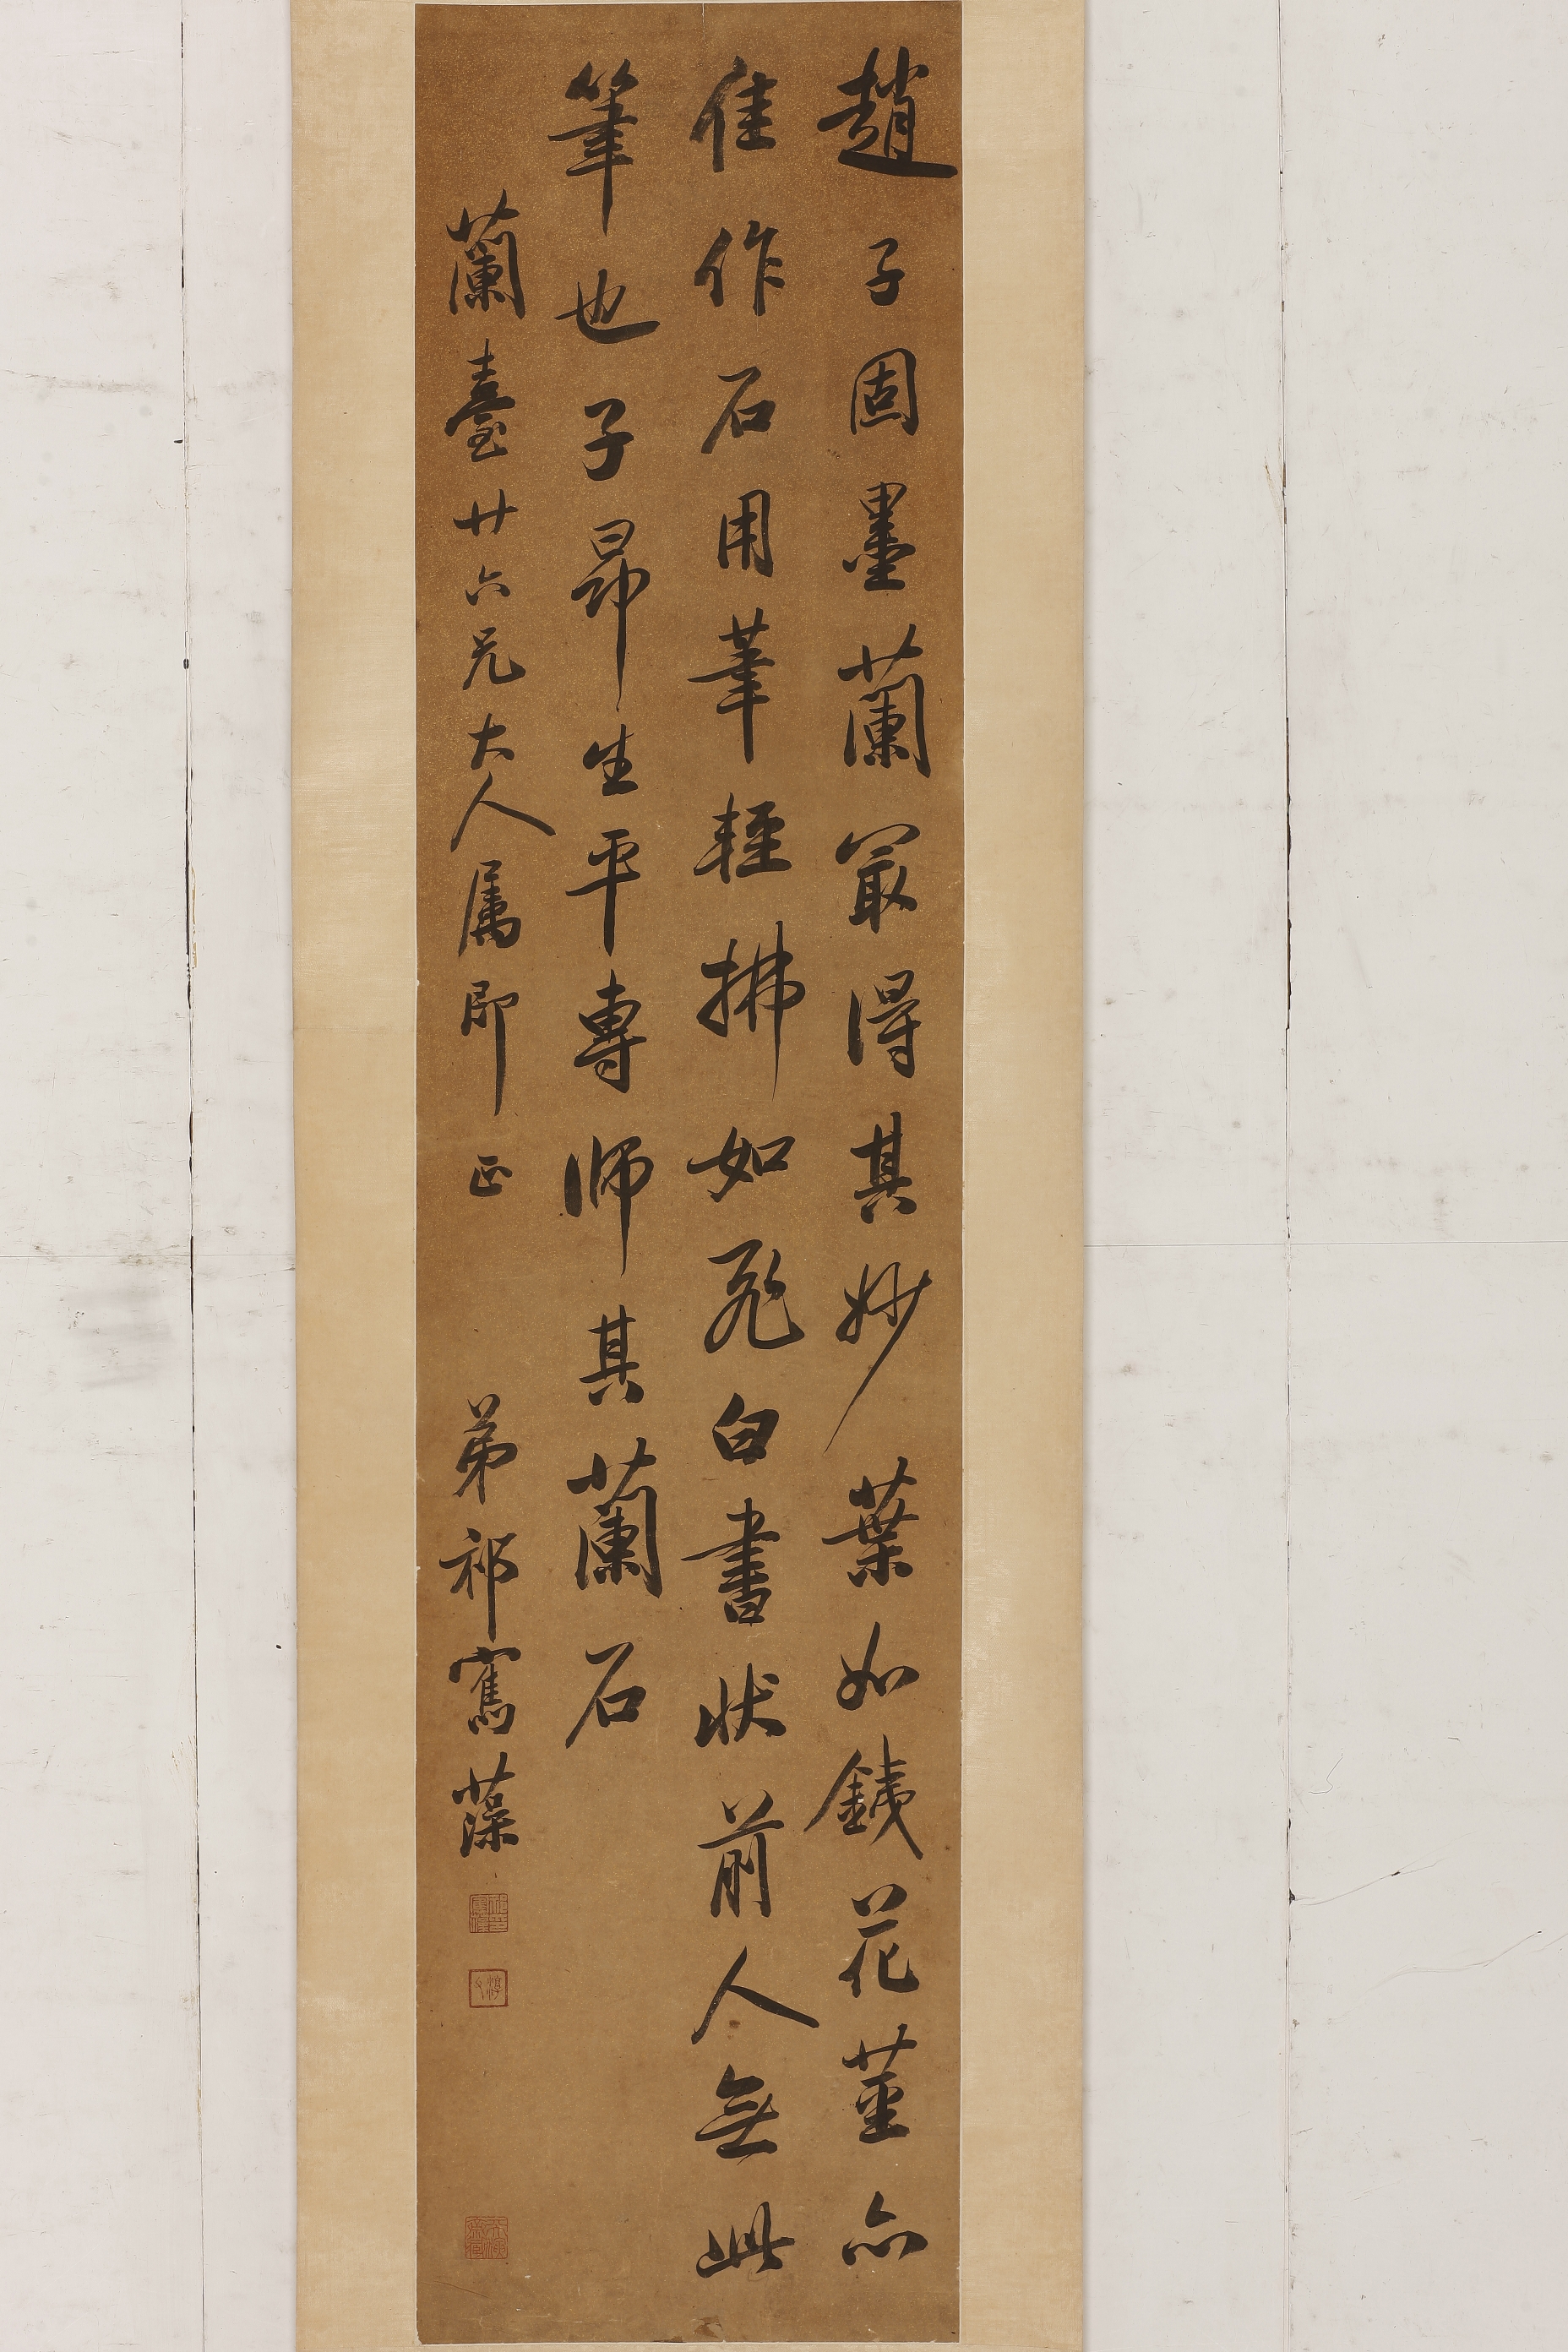 趙子固墨蘭冣得其妙葉如銕花莖亦
佳作石用筆輕拂如飛白書狀前人無此
筆也子昂生平專師其蘭石
蘭臺廿六兄大人属即正 弟祁寯藻